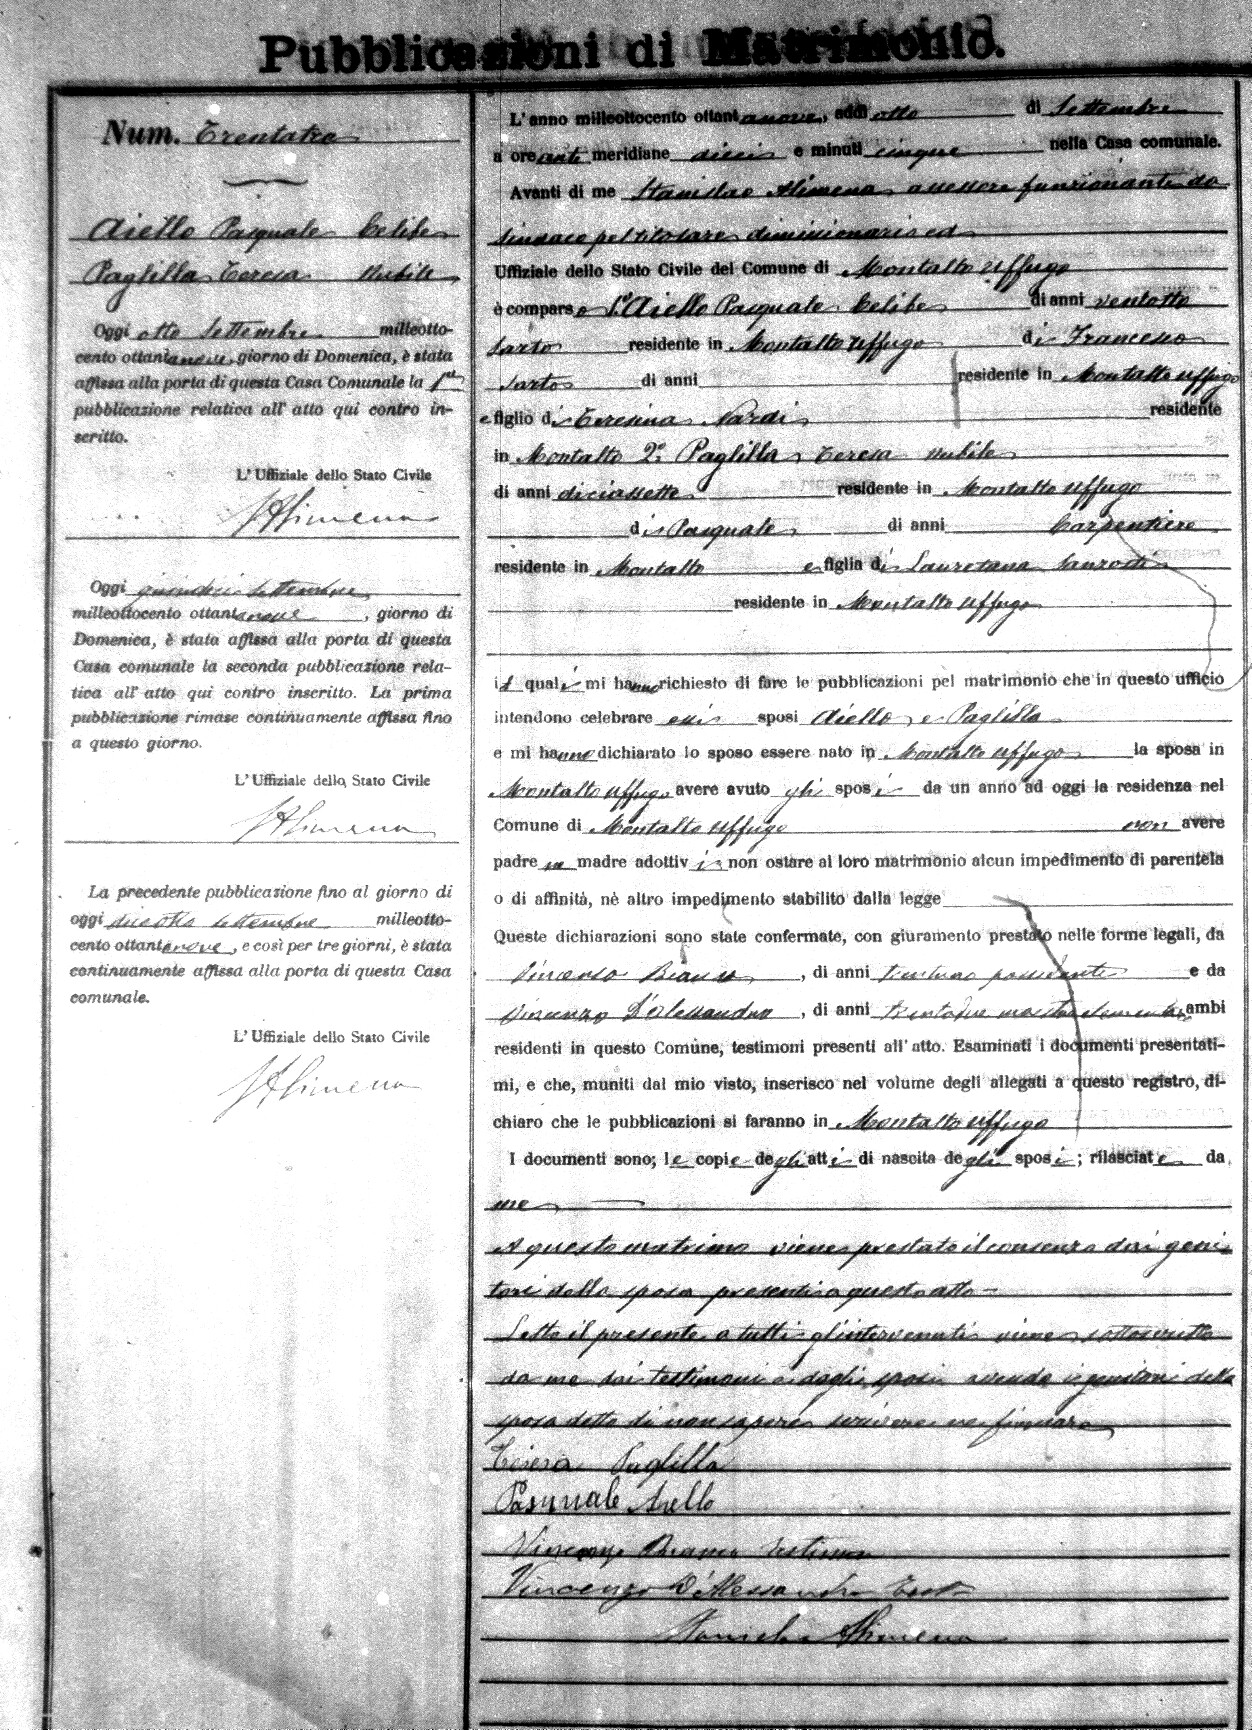 Pubblicazioni di Matrimonio.
Num. Trentatre
Aiello Pasquale Celibe
Paglilla Teresa Nubile
Oggi otto Settembre milleotto-
cento ottantanove, giorno di Domenica, è stata
affissa alla porta di questa Casa Comunale la 1ª
pubblicazione relativa all' atto qui contro in-
scritto.
L' Uffiziale dello Stato Civile
SAlimena
Oggi quindici Settembre
milleottocento ottantanove, giorno di
Domenica, è stata affissa alla porta di questa
Casa comunale la seconda pubblicazione rela-
tiva all' atto qui contro inscritto. La prima
pubblicazione rimase continuamente affissa fino
a questo giorno.
L' Uffiziale dello Stato Civile
SAlimena
La precedente pubblicazione fino al giorno di
oggi diciotto Settembre milleotto-
cento ottantanove, e così per tre giorni, è stata
continuamente affissa alla porta di questa Casa
comunale.
L' Uffiziale dello Stato Civile
SAlimena
L' anno milleottocento ottantanove, addì otto di Settembre
a ore anti meridiane dieci e minuti cinque nella Casa comunale.
Avanti di me Stanislao Alimena assessore funzionante da
sindaco pel titolare dimissionario ed
Uffiziale dello Stato Civile del Comune di Montalto Uffugo
è comparso 1º Aiello Pasquale Celibe di anni ventotto
sarto residente in Montalto Uffugo di Francesco
sarto di anni residente in Montalto Uffugo
e figlio di Teresina Nardi residente
in Montalto 2º Paglilla Teresa nubile
di anni diciassette residente in Montalto Uffugo
di Pasquale di anni Carpentiere
residente in Montalto e figlia di Lauretana
residente in Montalto Uffugo
i quali mi hanno richiesto di fare le pubblicazioni pel matrimonio che in questo ufficio
intendono celebrare essi sposi Aiello e Paglilla
e mi hanno dichiarato lo sposo essere nato in Montalto Uffugo la sposa in
Montalto Uffugo avere avuto gli sposi da un anno ad oggi la residenza nel
Comune di Montalto Uffugo non avere
padre ne madre adottivi non ostare al loro matrimonio alcun impedimento di parentela
o di affinità, nè altro impedimento stabilito dalla legge
Queste dichiarazioni sono state confermate, con giuramento prestato nelle forme legali, da
Vincenzo Bianco, di anni trentuno possidente e da
Vincenzo D'Alessandro, di anni trentadue ambi
residenti in questo Comune, testimoni presenti all' atto. Esaminati i documenti presentati-
mi, e che, muniti dal mio visto, inserisco nel volume degli allegati a questo registro, di-
chiaro che le pubblicazioni si faranno in Montalto Uffugo
I documenti sono; le copie degli atti di nascita degli sposi; rilasciate da
me
A questo matrimo viene prestato il consenzo dai geni-
tori della sposa presenti a questo atto
Letto il presente a tutti gl'intervenuti viene sottoscritto
da me dai testimoni e dagli sposi avendo i genitori della
sposa detto di non sapere scrivere ne firmare
Teresa Paglilla
Pasquale Aiello
Vincenzo Bianco testimone
Vincenzo D'Alessandro
Stanislao Alimena